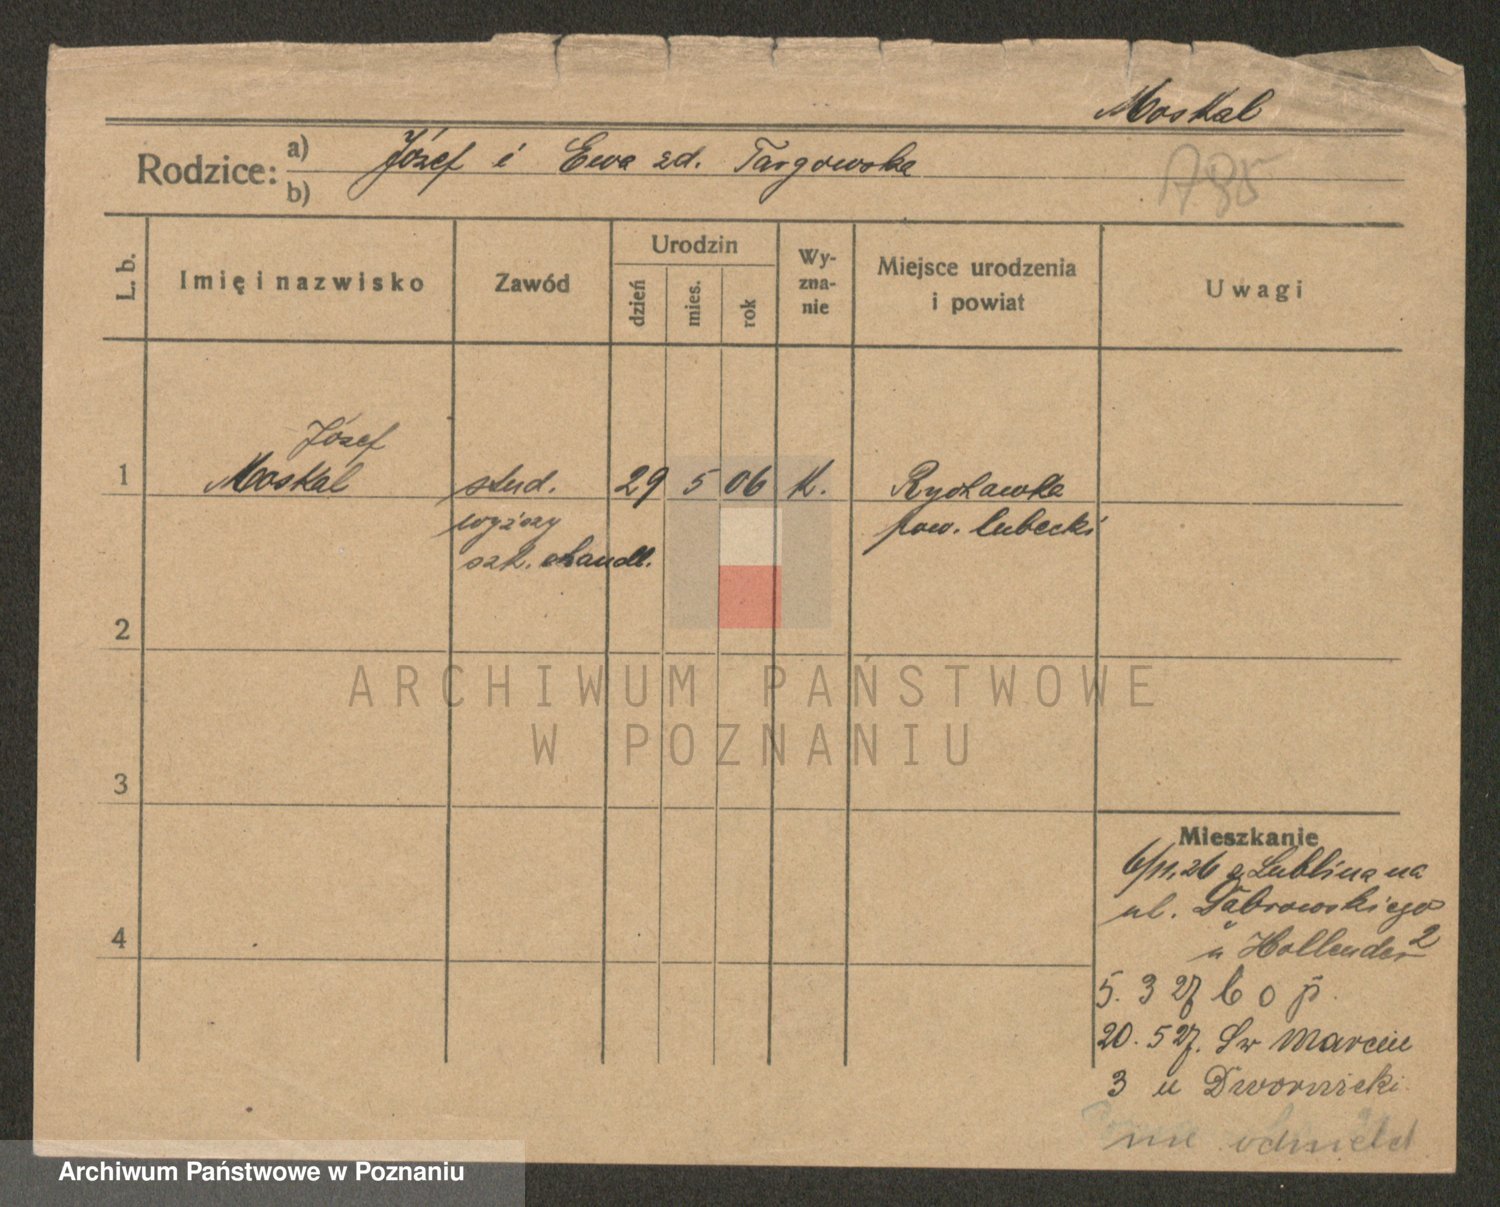 Moskal
Rodzice: a) b) Józef i Ewa zd. Targowska
785
L. b. Imię i nazwisko Zawód Urodzin dzień mies. rok Wy-zna-nie Miejsce urodzenia i powiat Uwagi
Józef
1 Moskal stud. 29 5 06 k. Rycławka
wyższy pow. lubecki
szk. handl.
2
3
4
Mieszkanie
6/11.26 z Lublina na
ul. Dąbrowskiego
u Hollender 2
5. 3 27 b o p.
20. 5 27. Św Marcin
3 u Dwornicki
nie odmeld
ARCHIWUM PAŃSTWOWE
W POZNANIU
Archiwum Państwowe w Poznaniu